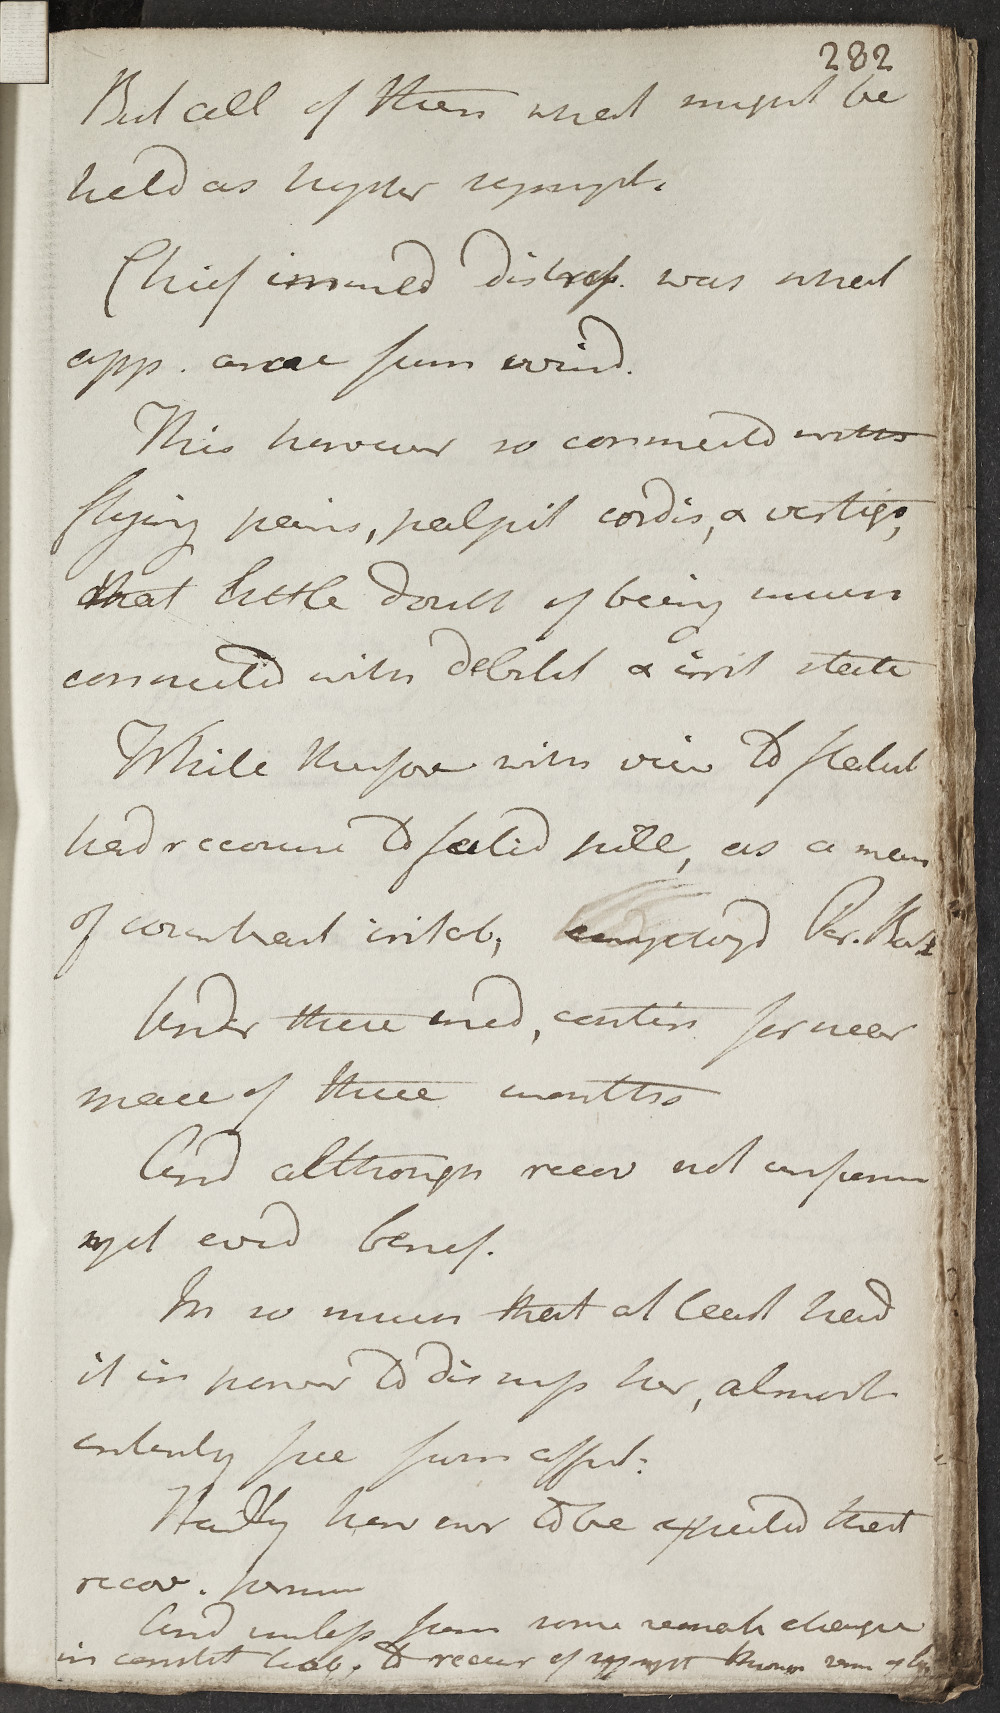 282
But all of them what might be
held as hyster sympt.
Chief immed distress. was what
app. arose from wind.
This however so connected with
flying pains, palpit cordis, & vertigo,
that little doubt of being much
connected with debilit & irrit state
While therefore with view to
had recourse to fetid pill, as a mean
of counteract irritab, employd Per. Bark
Under these med, contin for near
space of three months
And although recov not
yet evid benef.
In so much that at least had
it in power to dismiss her, almost
entirely free from affect:
Hardly however to be expected that
recov. perman
And unless from some remark change
in constit hab. to recur of sympt